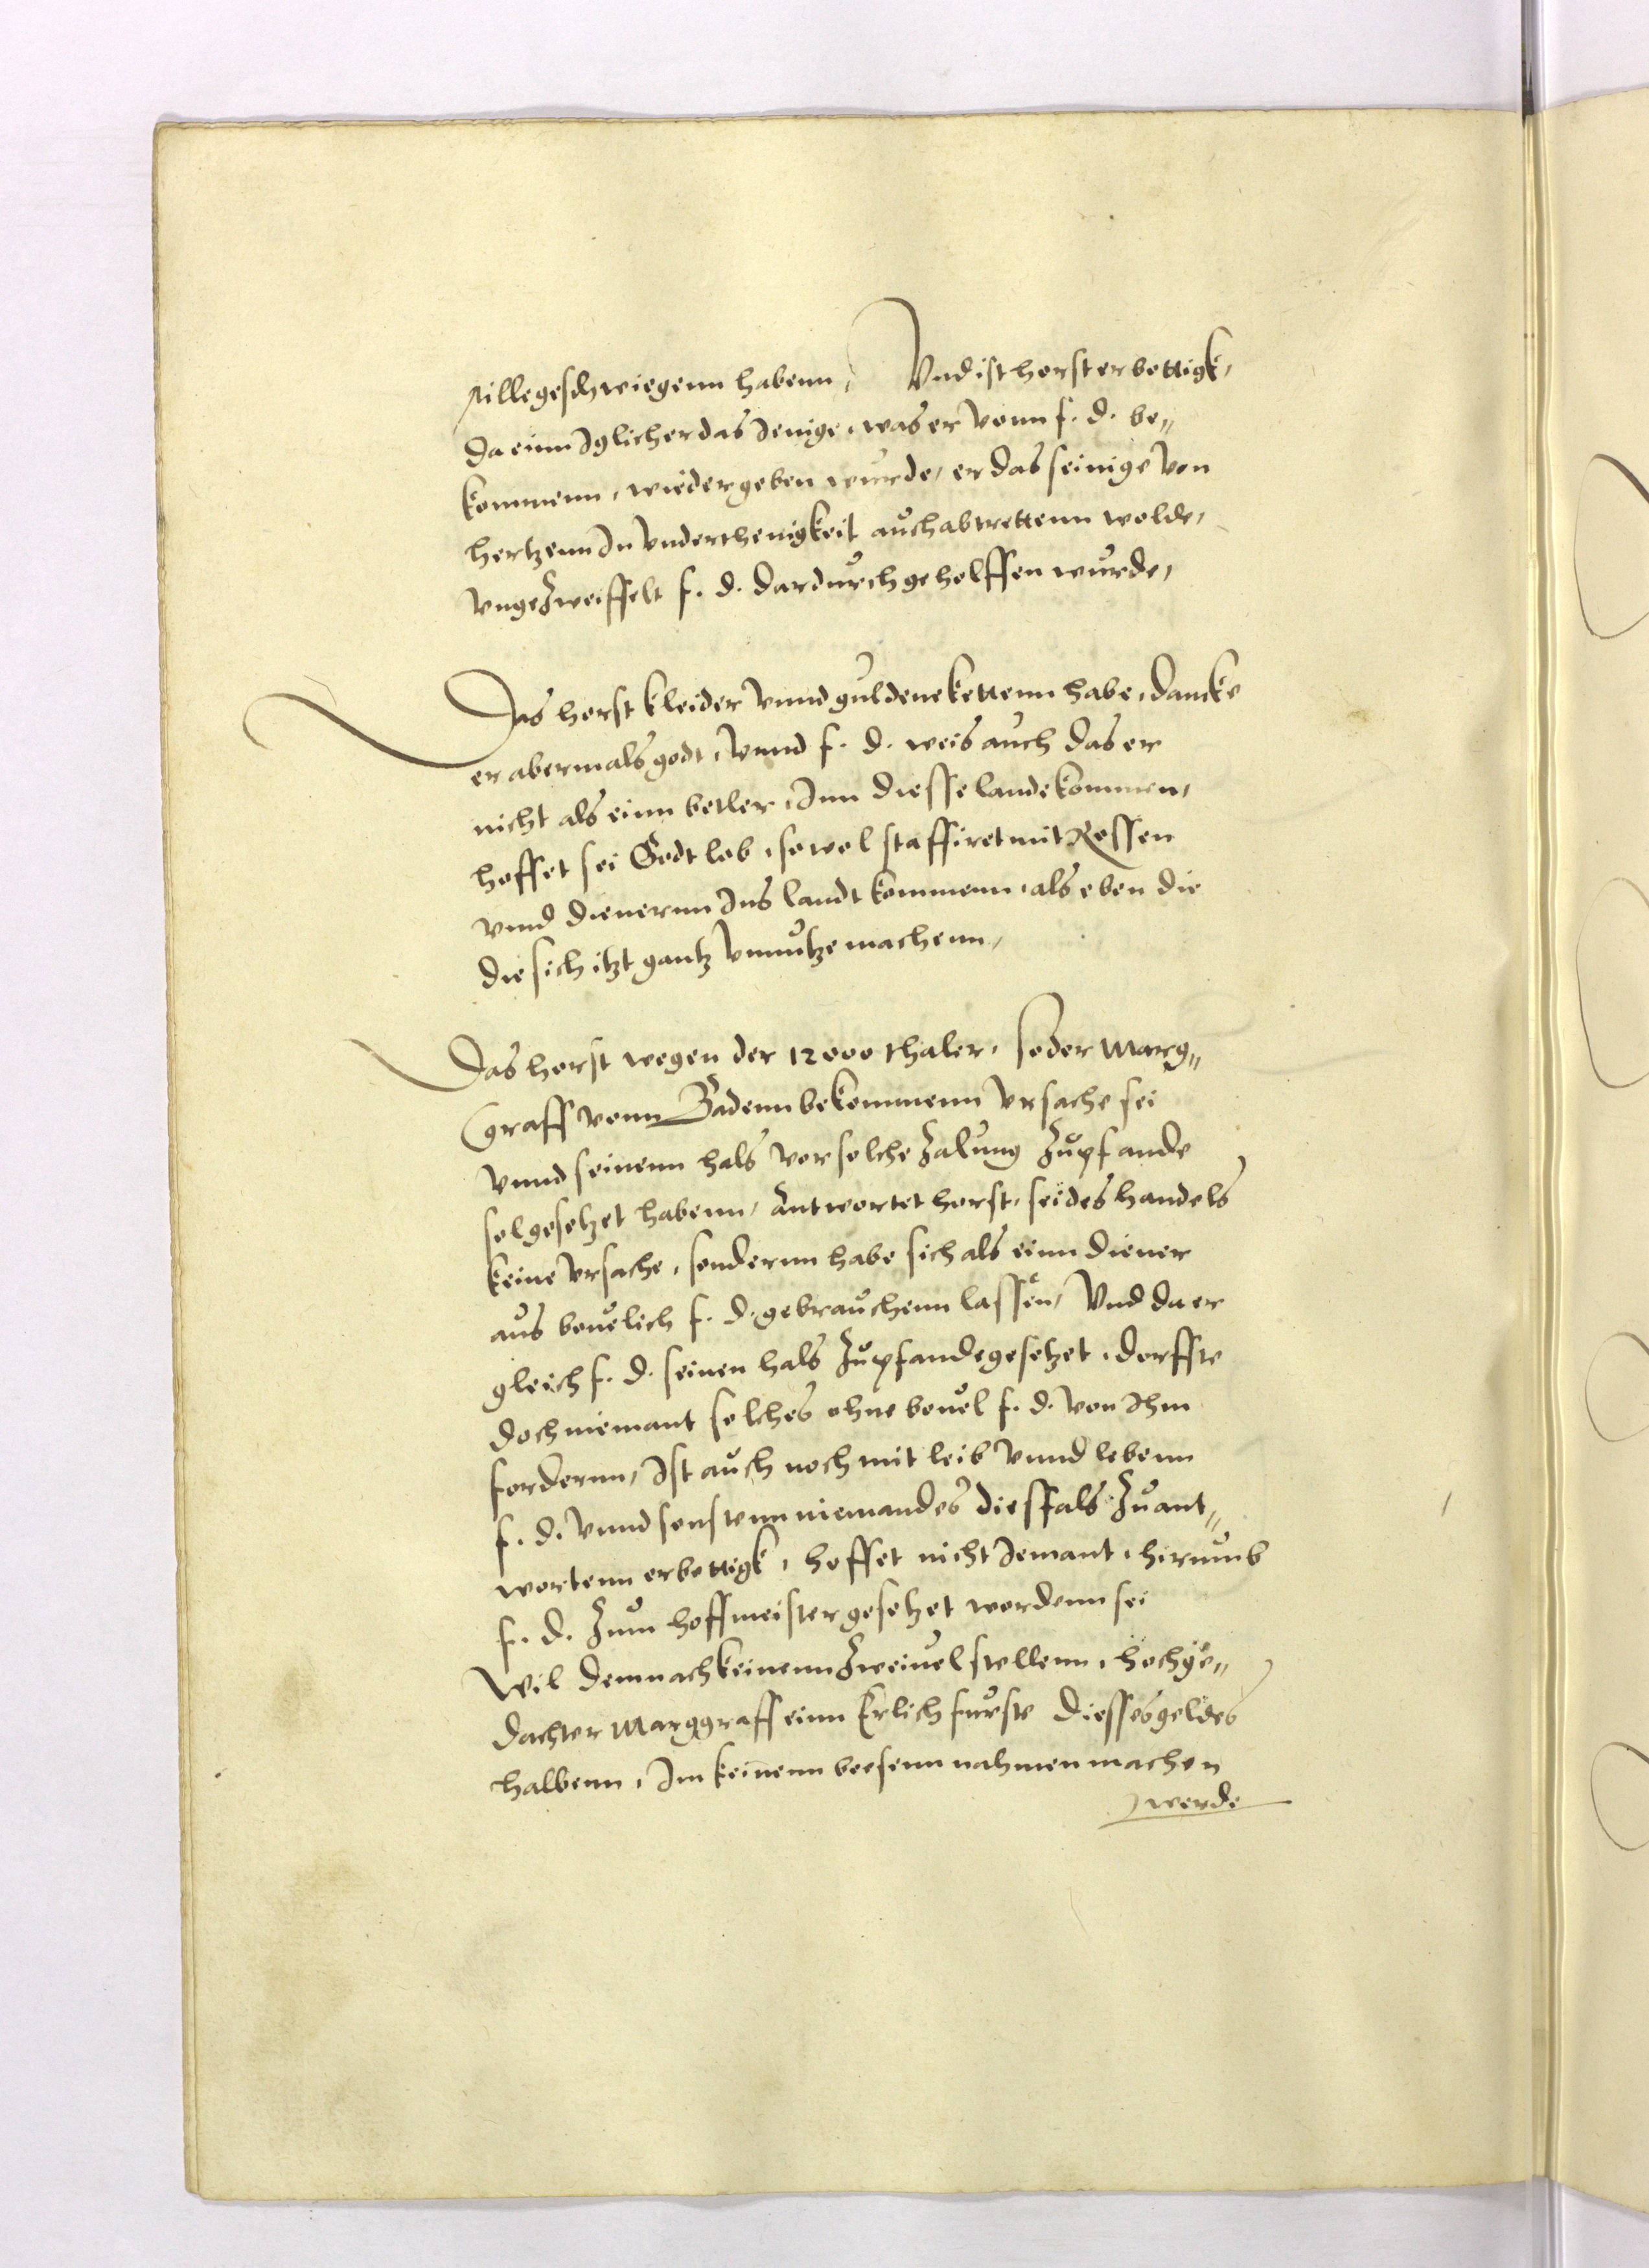 stillegeschwiegenn habenn, Vnd ist horst erbottigk,
da einn Iglicher das Ienige, was er vonn f. d. be„
kommenn, wiedergeben wurde, er das seinige von
hertzenn In Vnderthenigkeit auch abtrettenn wolde,
vngezweiffelt f. d. dardurch geholffen wurde,
Das horst kleider vnnd guldene kettenn habe, dancke
er abermals godt, vnnd f. d. weis auch das er
nicht als einn betler, Inn diesse lande kommen,
hoffet sei Godt lob, so wol staffiret mit Rossen
vnnd dienernn Ins landt kommenn, als eben die
die sich itzt gantz vnnutze machenn,
Das horst wegen der 12000 thaler, so der Marg„
Graff vonn Badenn bekommenn vrsache sei
vnnd seinenn hals vor solche Zalung Zu pfande
sol gesetzet habenn, Antwortet horst, sei des handels
keine vrsache, sondernn habe sich als einn diener
aus beuelich f. d. gebrauchenn lassen, Vnd da er
gleich f. d. seinen hals Zu pfande gesetzet, dorffte
doch niemant solches ohne beuel f. d. von Ihm
fordernn, Ist auch noch mit leib vnnd lebenn
f. d. vnnd sonstenn niemandes diesfals Zu ant„
wortenn erbottigk, hoffet nicht Iemant, hirumb
f. d. Zum hoffmeister gesetzet wordenn sei
Wil demnach keinenn Zweiuel stellenn, hochge„
dachter Marggraff einn Erlich furste diesses geldes
halbenn, Im keinenn boesenn nahmen machen
werde